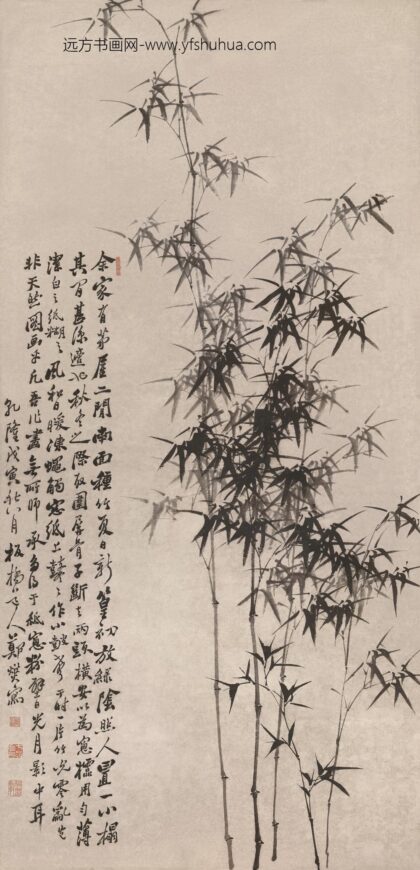 远方书画网-www.yfshuhua.com
余家有茅屋二間南面種竹夏日新篁初放綠陰照人置一小榻
其間甚涼適也秋冬之際取圍屏骨子斷去兩頭橫安以為窗櫺用勻薄
潔白之紙糊之風和日暖凍蠅觸窗紙上鼕々作小鼓聲于時一片竹影零亂豈
非天然圖畫乎凡吾作畫無所師承多得于紙窗粉壁日光月影中耳
乾隆戊寅秋八月板橋道人鄭燮寫